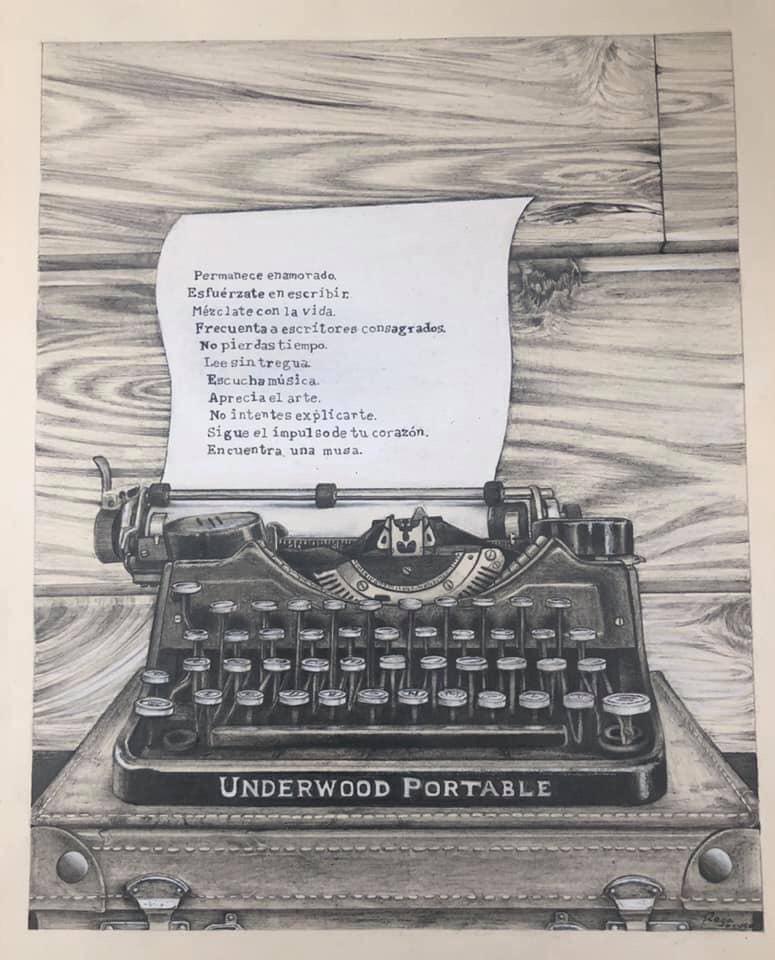 Permanece enamorado.
Esfuérzate en escribir.
Mézclate con la vida.
Frecuenta a escritores consagrados.
No pierdas tiempo.
Lee sin tregua.
Escucha música.
Aprecia el arte.
No intentes explicarte.
Sigue el impulso de tu corazón.
Encuentra una musa.
UNDERWOOD PORTABLE